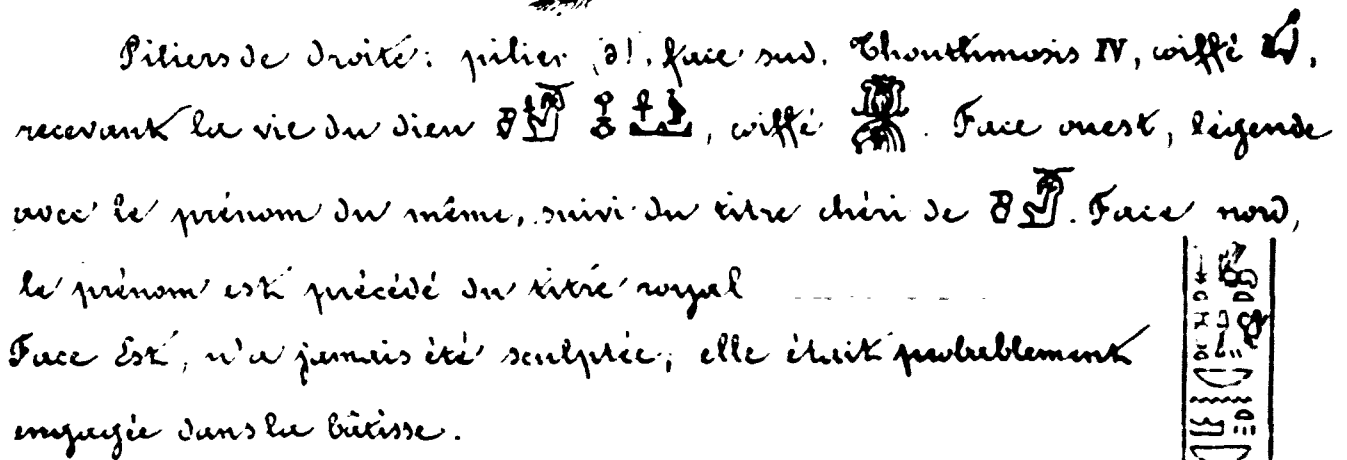 Piliers de droite: pilier d'. face sud. Thouthmosis IV, coiffé ,
recevant la vie du dieu , coiffé . Face ouest, légende
avec le prénom du même, suivi du titre chéri de . Face nord,
le prénom est précédé du titre royal
Face Est, n'a jamais été sculptée, elle était probablement
engagée dans la bâtisse.